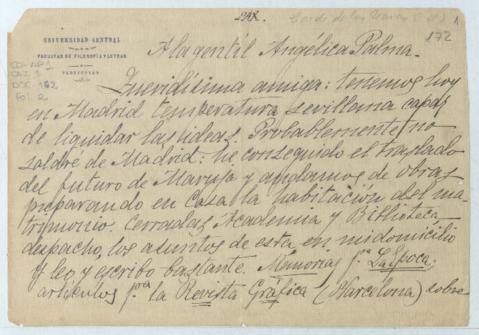 UNIVERSIDAD CENTRAL
FACULTAD DE FILOSOFIA Y LETRAS
PARTICULAR
172
A la gentil Angélica Palma.
Queridísima amiga: tenemos hoy
en Madrid temperatura sevillana capaz
de liquidar las ideas. Probablemente no
saldré de Madrid: he conseguido el traslado
del futuro de Maruja y andamos de obras
preparando en casa la habitación del ma-
trimonio. Cerradas Academia y Biblioteca
despacho los asuntos de esta en mi domicilio
y leo y escribo bastante. Memorias p.ª La Epoca;
artículos p.ª la Revista Gráfica (Barcelona) sobre